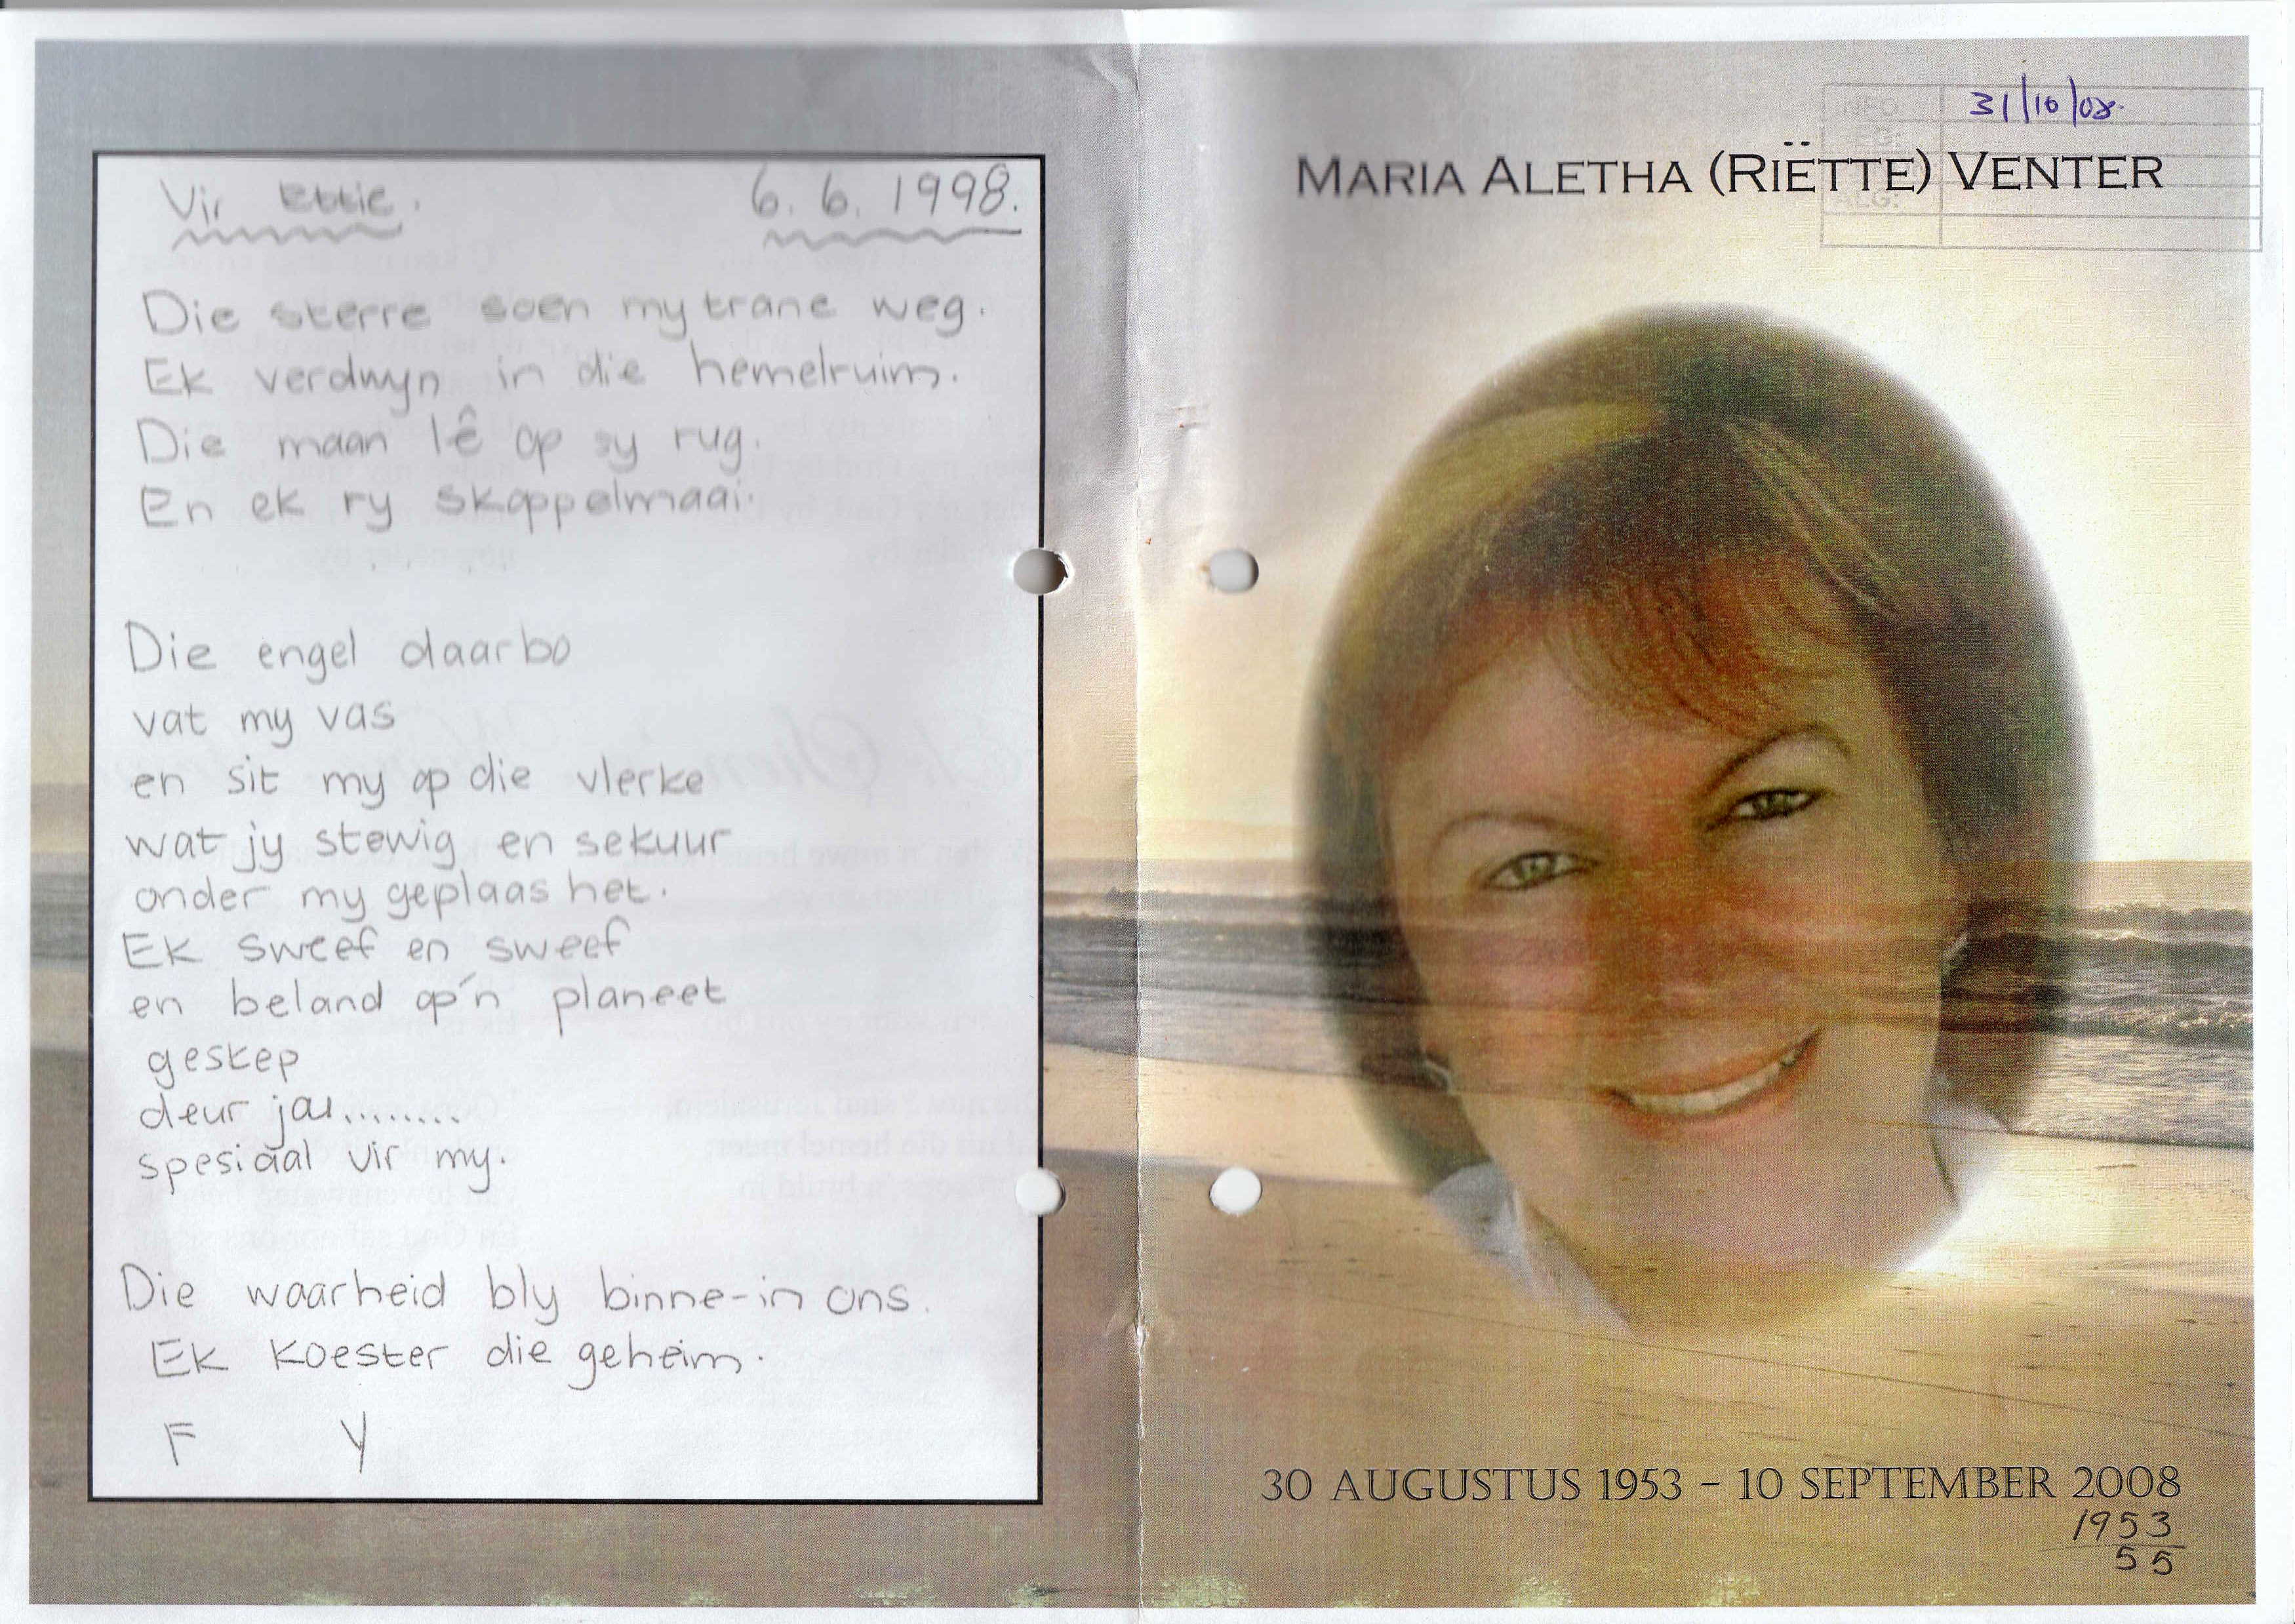 Vir Ettie.
6. 6. 1998.
Die sterre soen my trane weg.
Ek verdwyn in die hemelruim.
Die maan lê op sy rug.
En ek ry skoppelmaai.
Die engel daarbo
vat my vas
en sit my op die vlerke
wat jy stewig en sekuur
onder my geplaas het.
Ek sweef en sweef
en beland op 'n planeet
geskep
deur jou........
spesiaal vir my.
Die waarheid bly binne-in ons.
Ek koester die geheim.
F Y
31/10/08.
INFO:
ALG:
MARIA ALETHA (RIËTTE) VENTER
30 AUGUSTUS 1953 – 10 SEPTEMBER 2008
1953
55